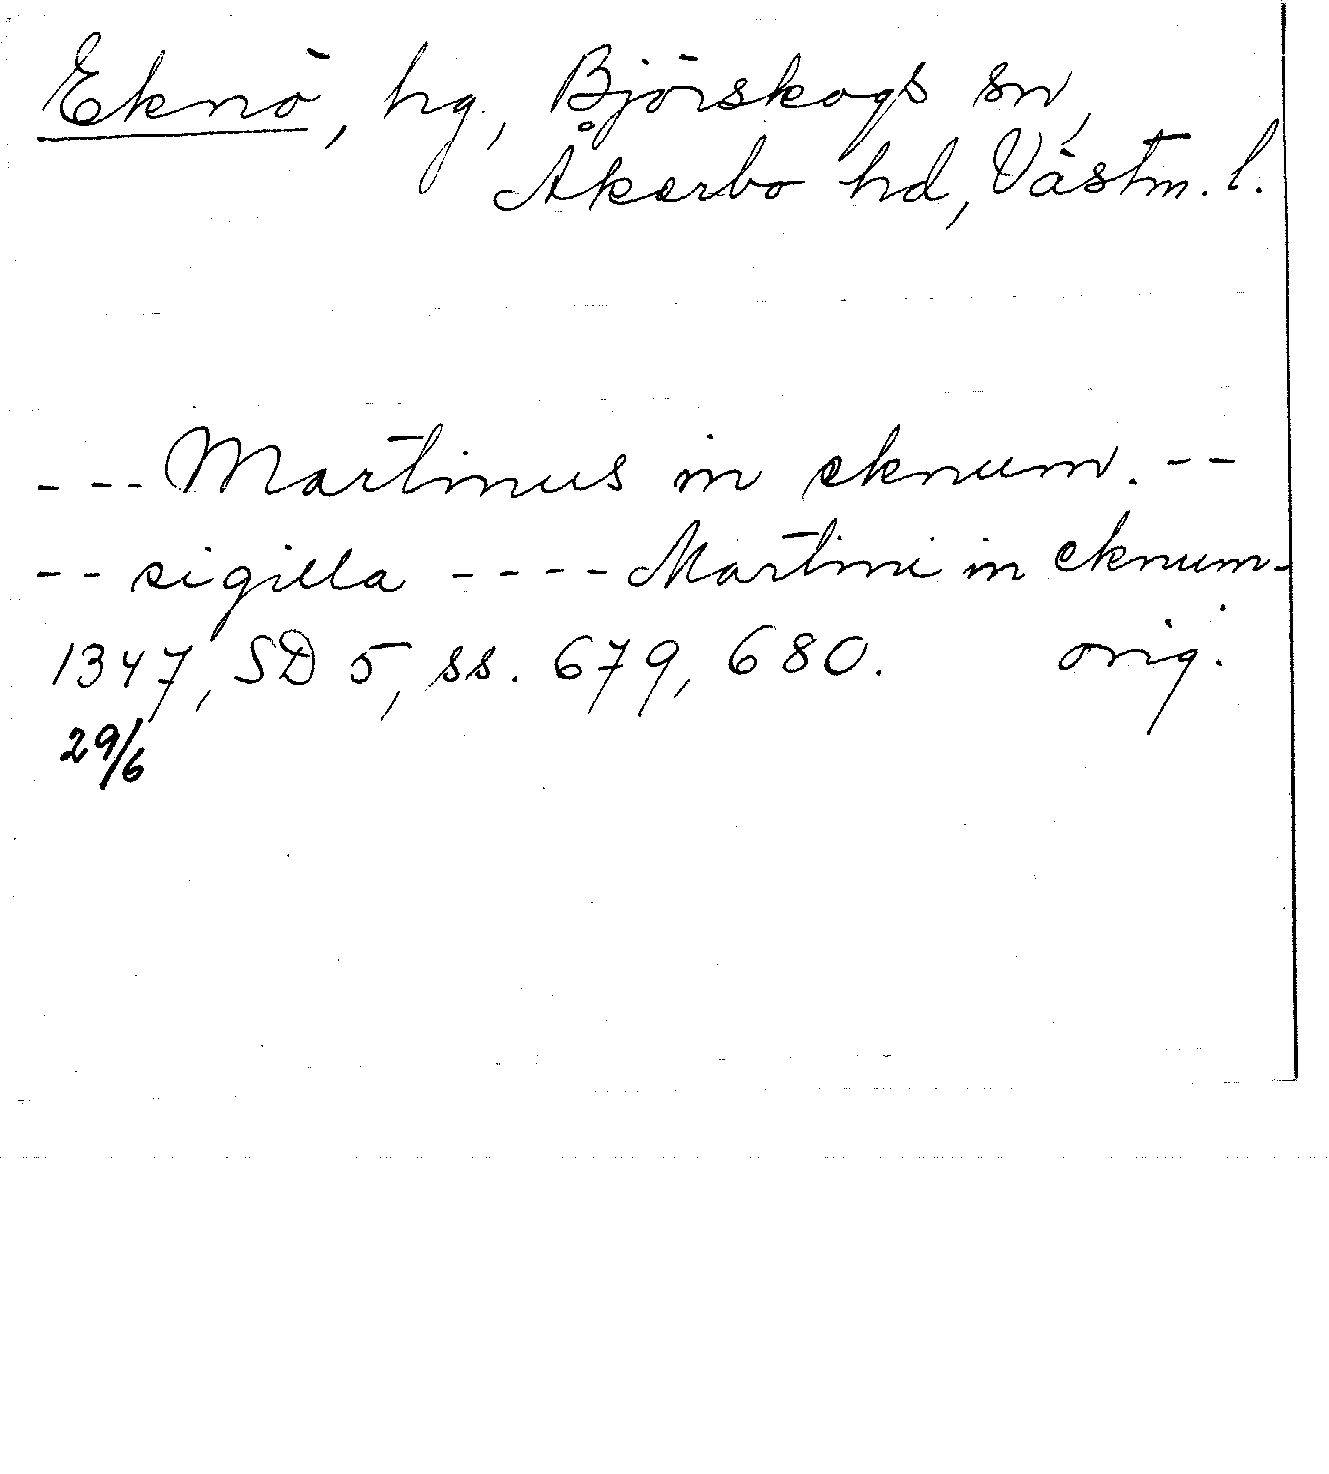 Eknö, hg., Björskogs sn,
Åkerbo hd, Västm. l.
--- Martinus in eknum. --
-- sigilla ---- Martini in eknum.
1347, SD 5, ss. 679, 680. orig.
29/6